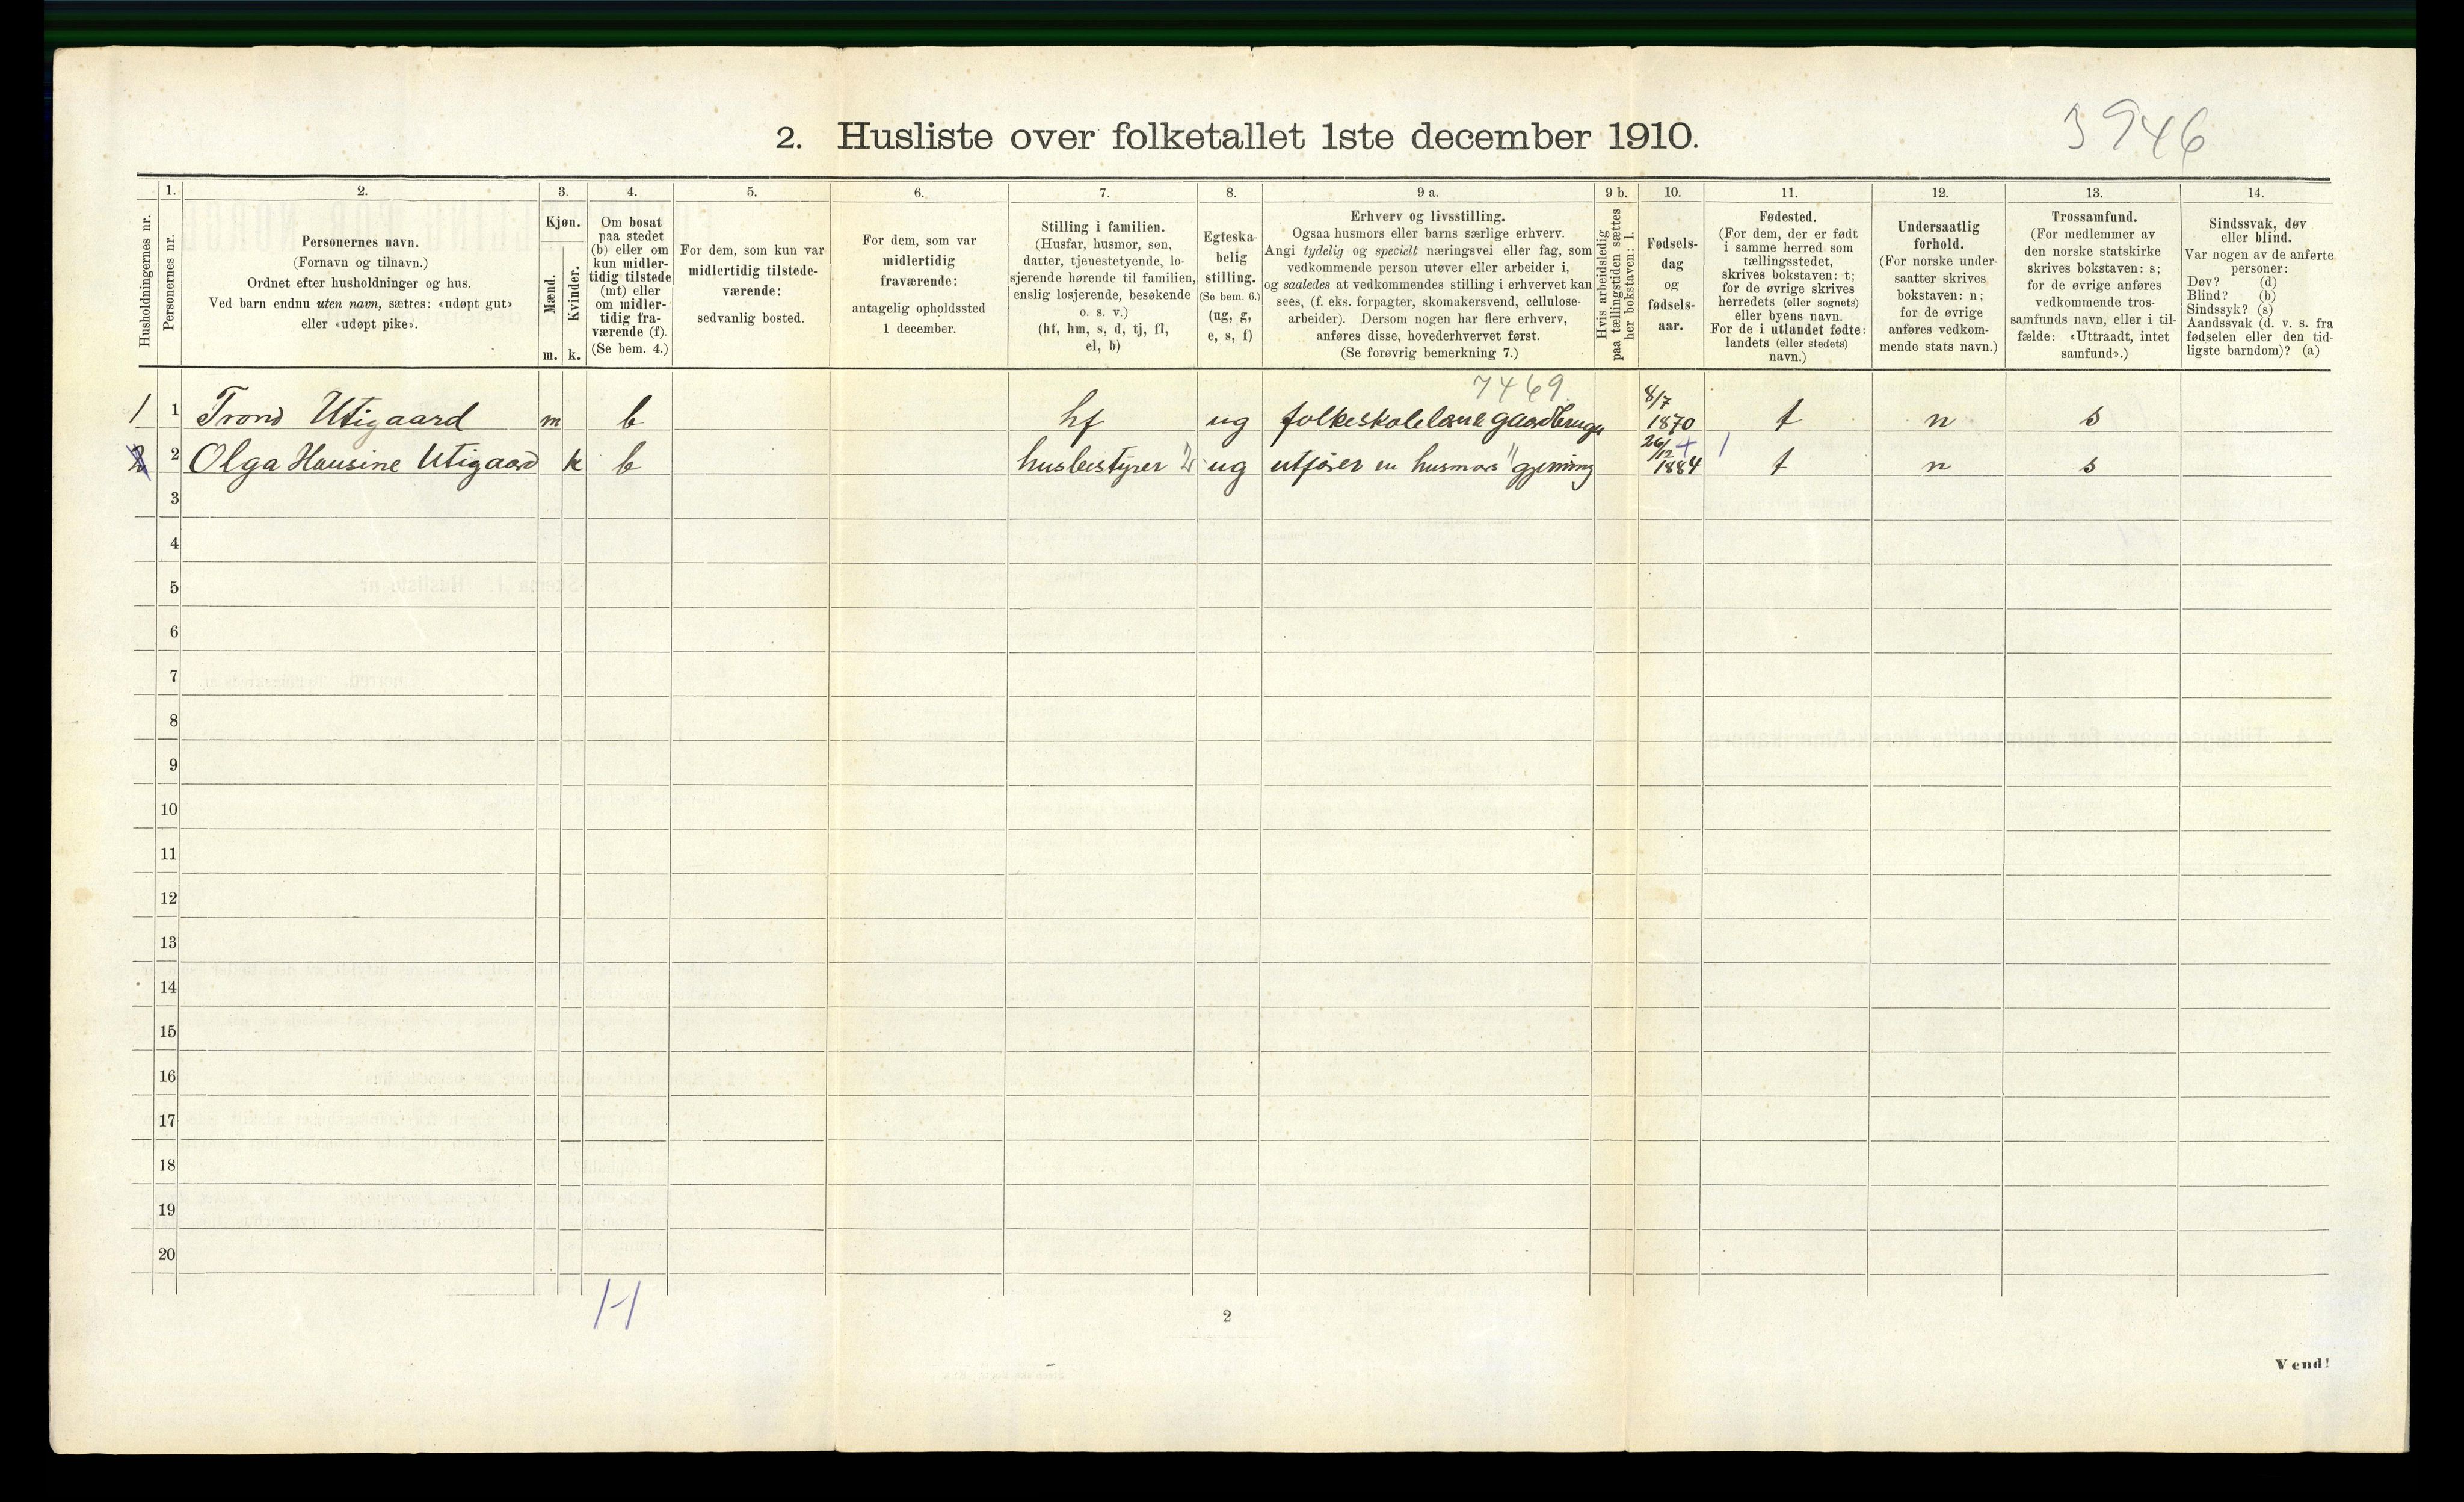 3946
2. Husliste over folketallet 1ste december 1910.
Husholdningernes nr.
1.
Personernes nr.
2.
Personernes navn.
(Fornavn og tilnavn.)
Ordnet efter husholdninger og hus.
Ved barn endnu uten navn, sættes: «udøpt gut»
eller «udøpt pike».
3.
Kjøn.
Mænd.
m.
Kvinder.
k.
4.
Om bosat
paa stedet
(b) eller om
kun midler-
tidig tilstede
(mt) eller
om midler-
tidig fra-
værende (f).
(Se bem. 4.)
5.
For dem, som kun var
midlertidig tilstede-
værende:
sedvanlig bosted.
6.
For dem, som var
midlertidig
fraværende:
antagelig opholdssted
1 december.
7.
Stilling i familien.
(Husfar, husmor, søn,
datter, tjenestetyende, lo-
sjerende hørende til familien,
enslig losjerende, besøkende
o. s. v.)
(hf, hm, s, d, tj, fl,
el, b)
8.
Egteska-
belig
stilling.
(Se bem. 6.)
(ug, g,
e, s, f)
9 a.
Erhverv og livsstilling.
Ogsaa husmors eller barns særlige erhverv.
Angi tydelig og specielt næringsvei eller fag, som
vedkommende person utøver eller arbeider i,
og saaledes at vedkommendes stilling i erhvervet kan
sees, (f. eks. forpagter, skomakersvend, cellulose-
arbeider). Dersom nogen har flere erhverv,
anføres disse, hovederhvervet først.
(Se forøvrig bemerkning 7.)
9 b.
Hvis arbeidsledig
paa tællingstiden sættes
her bokstaven: l.
10.
Fødsels-
dag
og
fødsels-
aar.
11.
Fødested.
(For dem, der er født
i samme herred som
tællingsstedet,
skrives bokstaven: t;
for de øvrige skrives
herredets (eller sognets)
eller byens navn.
For de i utlandet fødte:
landets (eller stedets)
navn.)
12.
Undersaatlig
forhold.
(For norske under-
saatter skrives
bokstaven: n;
for de øvrige
anføres vedkom-
mende stats navn.)
13.
Trossamfund.
(For medlemmer av
den norske statskirke
skrives bokstaven: s;
for de øvrige anføres
vedkommende tros-
samfunds navn, eller i til-
fælde: «Uttraadt, intet
samfund».)
14.
Sindssvak, døv
eller blind.
Var nogen av de anførte
personer:
Døv? (d)
Blind? (b)
Sindssyk? (s)
Aandssvak (d. v. s. fra
fødselen eller den tid-
ligste barndom)? (a)
7469.
1 1 Trond Utigaard m b hf ug folkeskolelærer gaardbruger 8/7 1870 t n s
2 2 Olga Hansine Utigaard k b husbestyrer 2 ug utfører en husmors gjerning 26/12 + 1884 1 t n s
3
4
5
6
7
8
9
10
11
12
13
14
15
16
17
18
19
20
1-1
2
Vend!